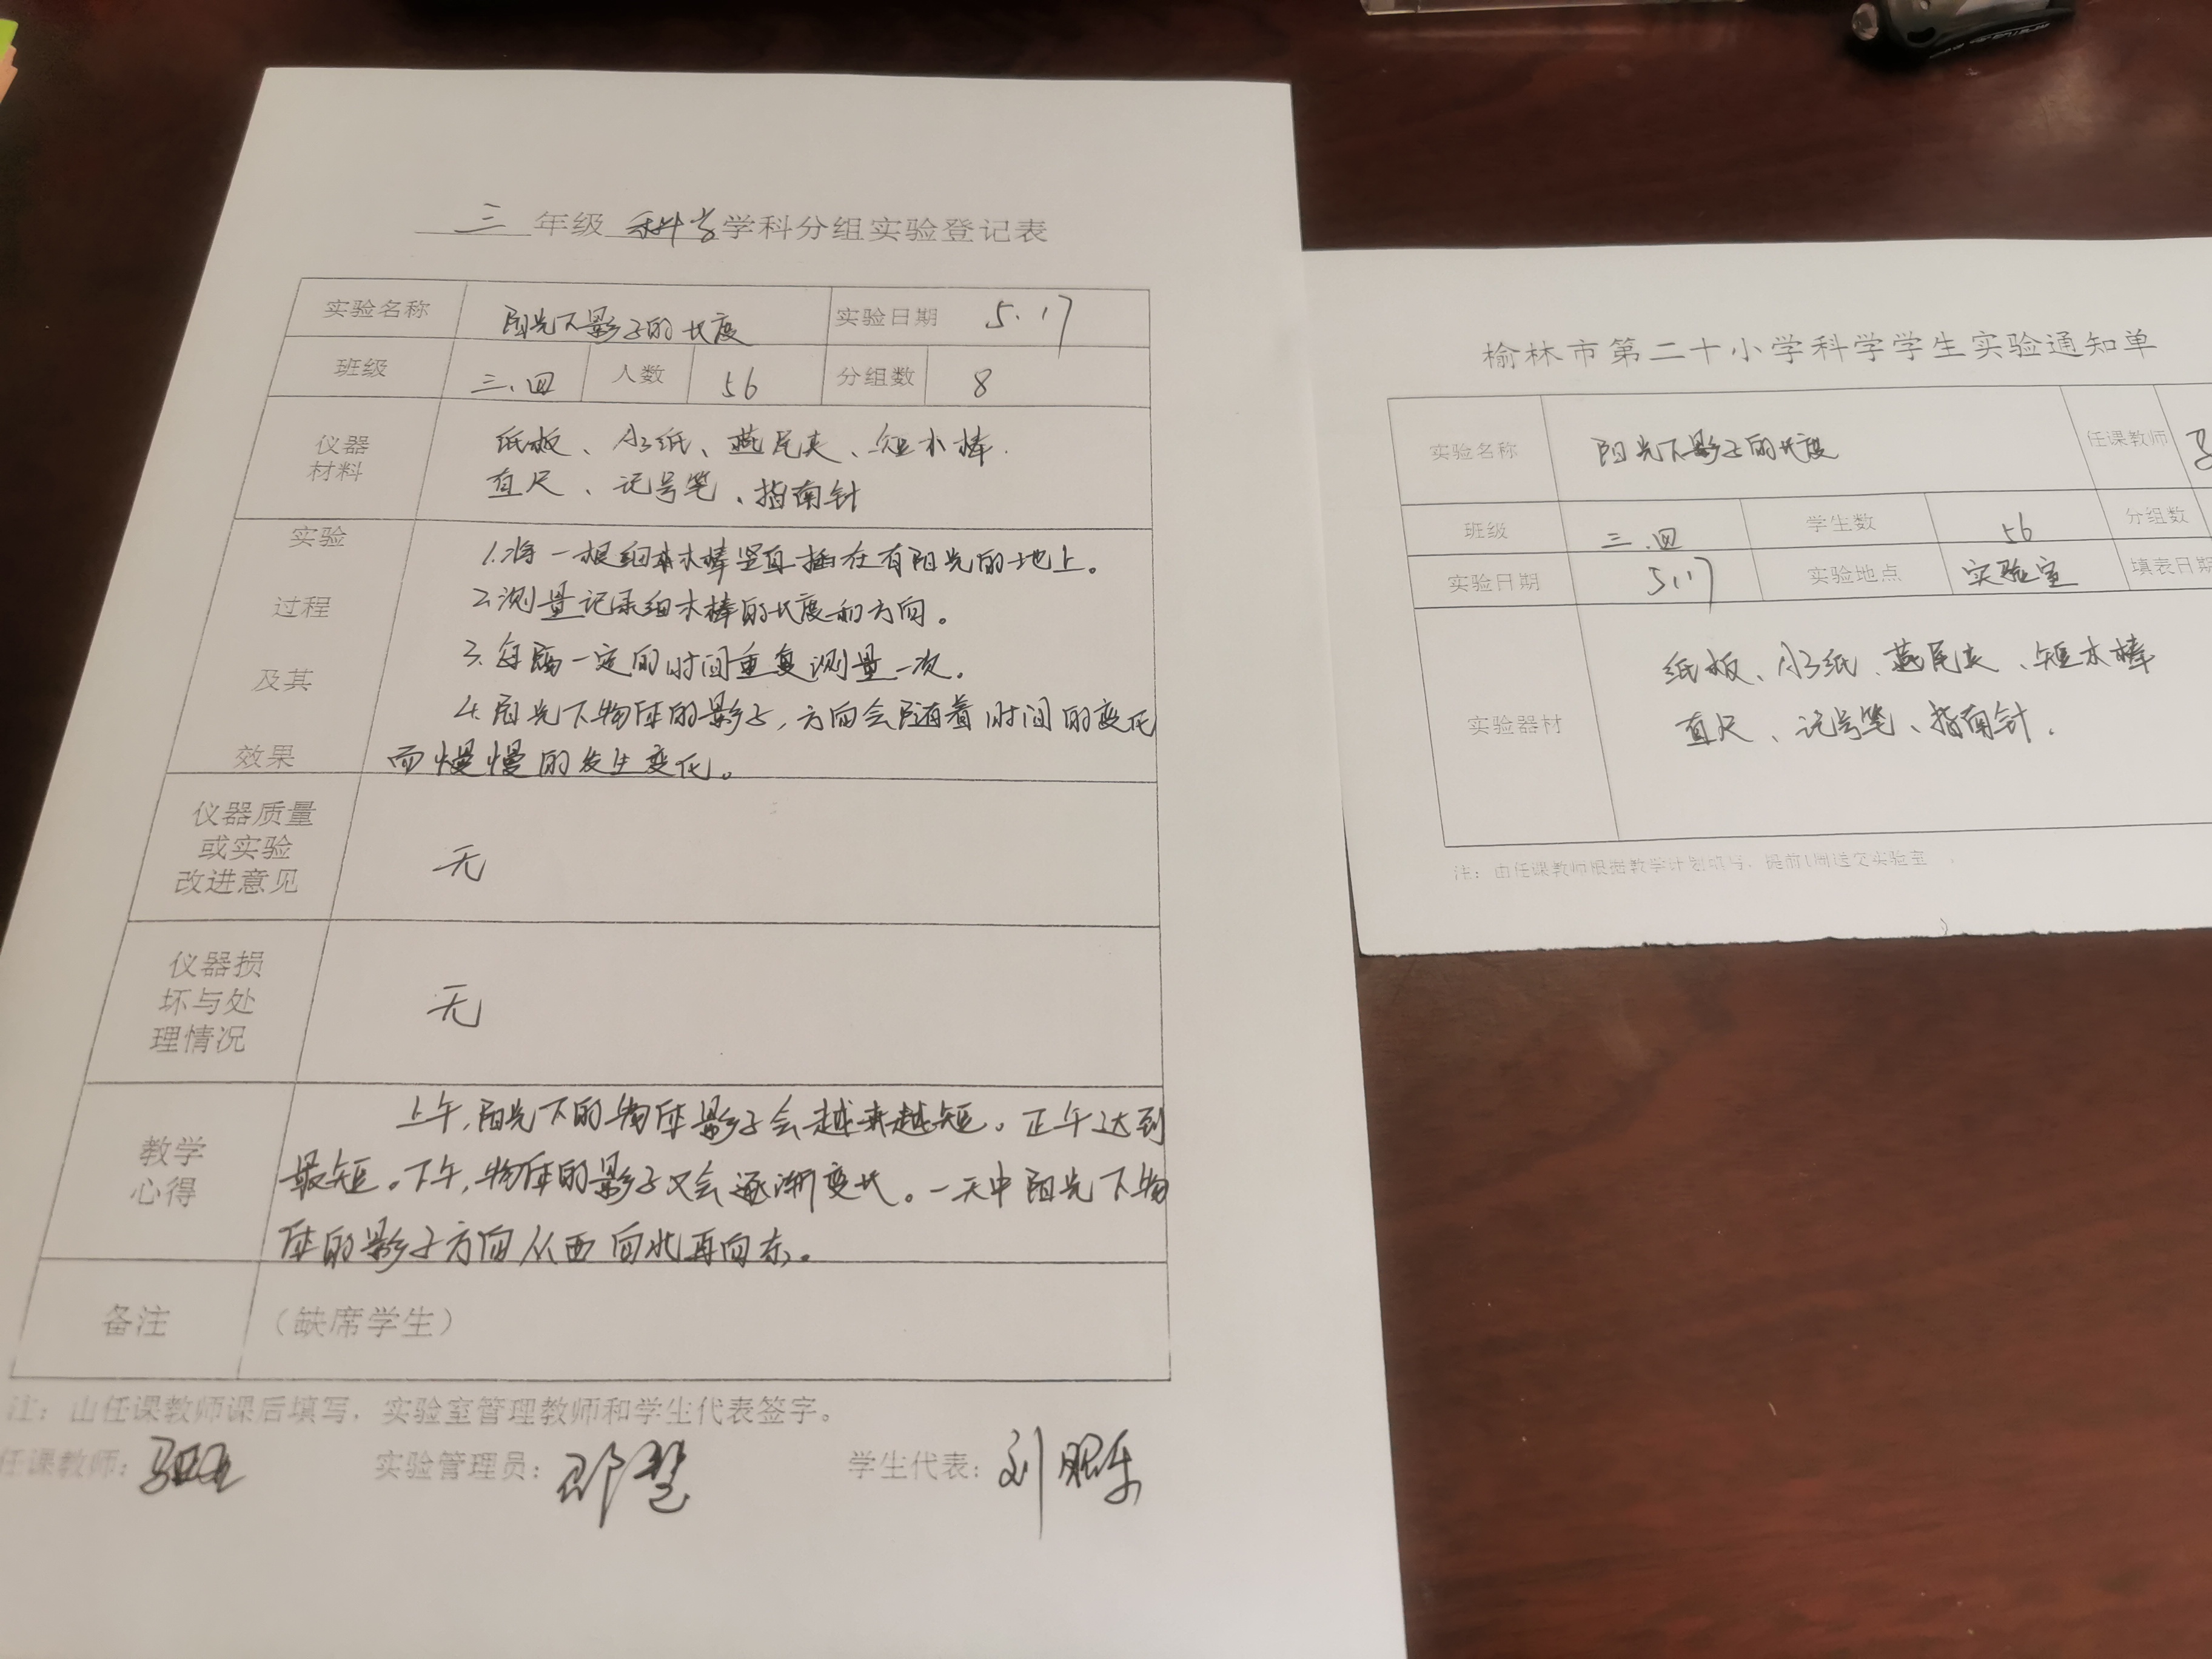 三 年级 科学 学科分组实验登记表
实验名称 阳光下影子的长度 实验日期 5.17
班级 三.四 人数 56 分组数 8
仪器
材料
纸板、A3纸、燕尾夹、短木棒.
直尺、记号笔、指南针
实验
过程
及其
效果
1.将一根细木棒竖直插在有阳光的地上。
2.测量记录细木棒的长度和方向。
3.每隔一定的时间重复测量一次.
4.阳光下物体的影子,方向会随着时间的变化
而慢慢的发生变化。
仪器质量
或实验
改进意见
无
仪器损
坏与处
理情况
无
教学
心得
上午,阳光下的物体影子会越来越短。正午达到
最短。下午,物体的影子又会逐渐变长。一天中阳光下物
体的影子方向从西向北再向东。
备注 （缺席学生）
注：由任课教师课后填写，实验室管理教师和学生代表签字。
任课教师： 实验管理员： 学生代表：刘
榆林市第二十小学科学学生实验通知单
实验名称 阳光下影子的长度 任课教师
班级 三.四 学生数 56 分组数
实验日期 5.17 实验地点 实验室 填表日期
实验器材
纸板、A3纸、燕尾夹、短木棒
直尺、记号笔、指南针.
注：由任课教师根据教学计划填写，提前1周送交实验室